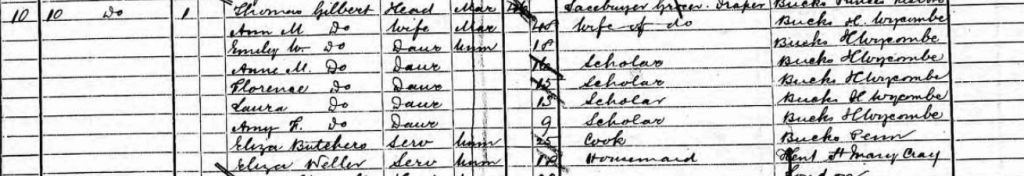 10 10 Do 1 Thomas Gilbert Head Mar Lacebuyer Grocer Draper Bucks
Ann M. Do Wife Mar 48 Wife of do Bucks H. Wycombe
Emily W. Do Daur Unm 18 Bucks H Wycombe
Anne M. Do Daur 16 Scholar Bucks H Wycombe
Florence Do Daur 15 Scholar Bucks H Wycombe
Laura Do Daur 13 Scholar Bucks H Wycombe
Amy F. Do Daur 9 Scholar Bucks H Wycombe
Eliza Butchers Serv Unm 25 Cook Bucks Penn
Eliza Weller Serv Unm 18 Housemaid Kent St Mary Cray